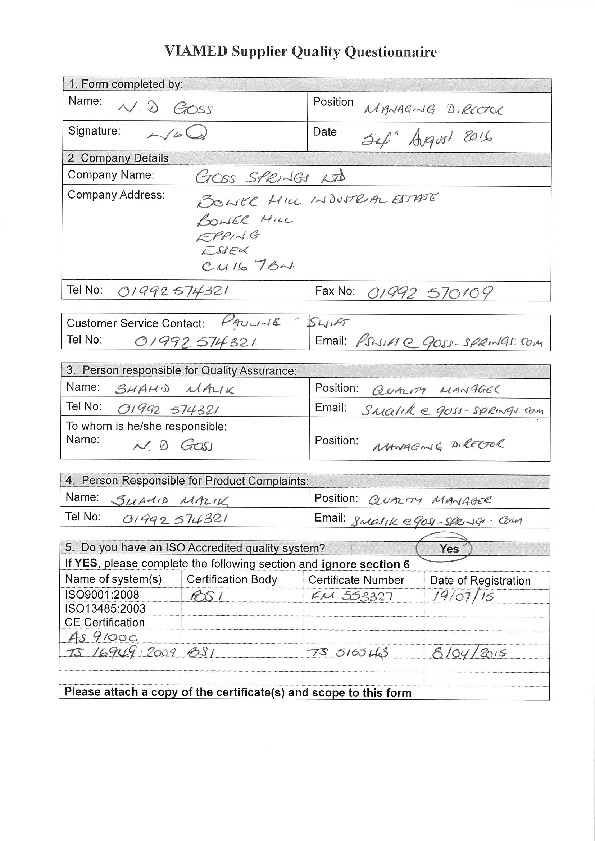 VIAMED Supplier Quality Questionnaire
1. Form completed by:
Name: N. D GOSS Position MANAGING DIRECTOR
Signature: Date 24th AUGUST 2016
2 Company Details
Company Name: GOSS SPRINGS LTD
Company Address: BOWER HILL INDUSTRIAL ESTATE
BOWER HILL
EPPING
ESSEX
CM16 7BN
Tel No: 01992 574321 Fax No: 01992 570109
Customer Service Contact: PAULINE SWIFT
Tel No: 01992 574321 Email: PSWIFT@goss-springs.com
3. Person responsible for Quality Assurance:
Name: SHAHID MALIK Position: QUALITY MANAGER
Tel No: 01992 574321 Email: Smalik@goss-springs.com
To whom is he/she responsible:
Name: N. D GOSS Position: MANAGING DIRECTOR
4. Person Responsible for Product Complaints:
Name: SHAHID MALIK Position: QUALITY MANAGER
Tel No: 01992 574321 Email: Smalik@goss-springs.com
5. Do you have an ISO Accredited quality system? Yes
If YES, please complete the following section and ignore section 6
Name of system(s) Certification Body Certificate Number Date of Registration
ISO9001:2008 BSI FM 553327 19/07/15
ISO13485:2003
CE Certification
AS 9100C
TS 16949:2009 BSI TS 8/04/2015
Please attach a copy of the certificate(s) and scope to this form